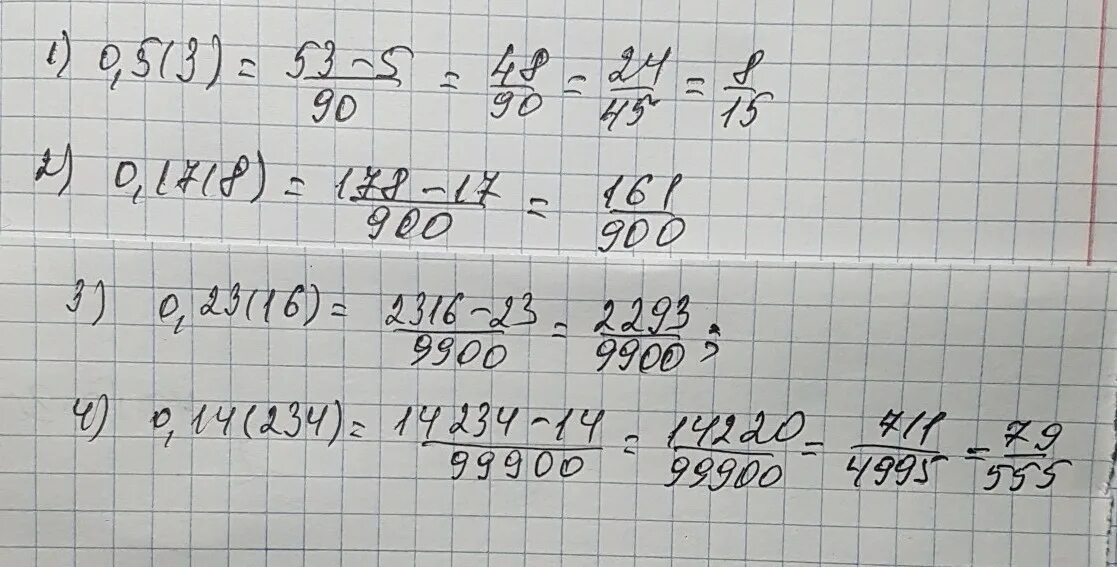 1) 0,5(3) = 53-5/90 = 48/90 = 24/45 = 8/15
2) 0,17(8) = 178-17/900 = 161/900
3) 0,23(16) = 2316-23/9900 = 2293/9900;
4) 0,14(234) = 14234-14/99900 = 14220/99900 = 711/4995 = 79/555